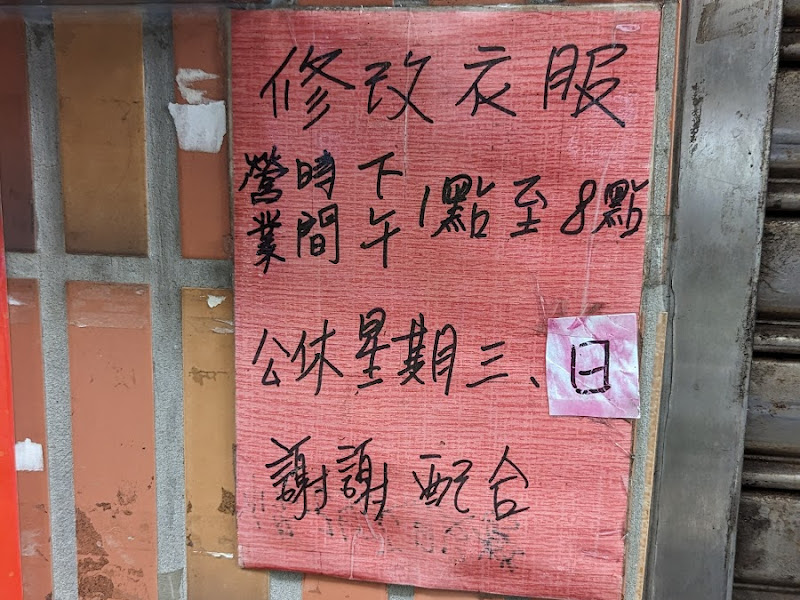 修改衣服
營業時間下午1點至8點
公休星期三、日
謝謝配合